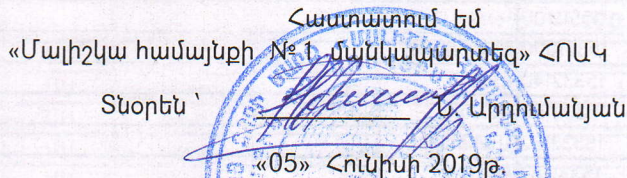 Հաստատում եմ
«Մալիշկա համայնքի № 1 մանկապարտեզ» ՀՈԱԿ
Տնօրեն ՝ Ն. Արղումանյան
«05» Հունիսի 2019թ.